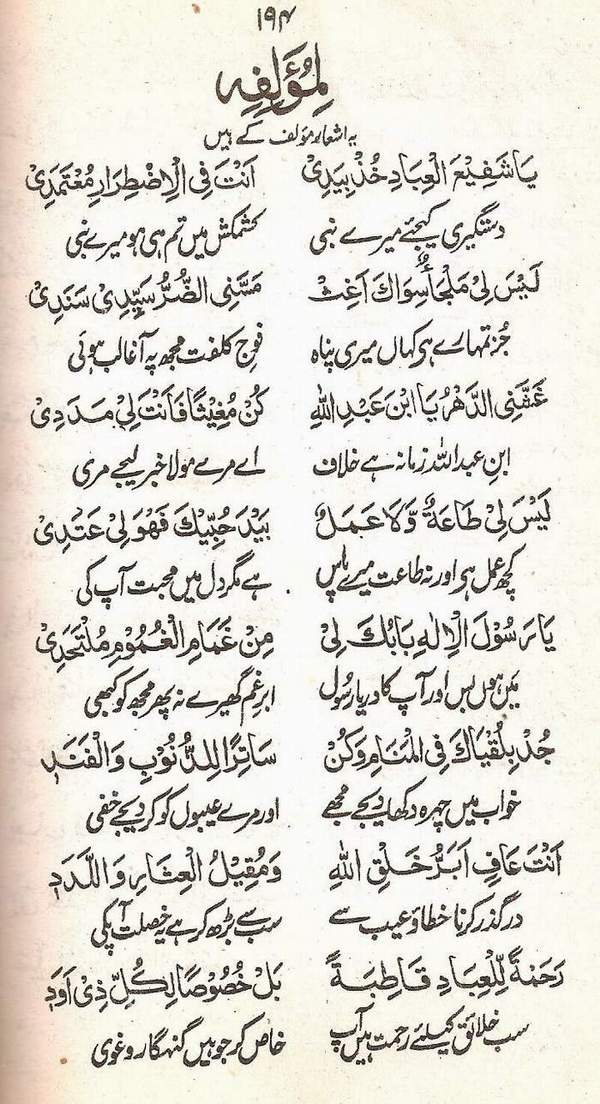 ۱۹۴
لِمُؤَلِّفِهٖ
یہ اشعار مؤلف کے ہیں
يَا شَفِيْعَ الْعِبَادِ خُذْ بِيَدِىْ اَنْتَ فِى الْاِضْطِرَارِ مُعْتَمَدِىْ
دستگیری کیجئے میرے نبی کشمکش میں تم ہی ہو میرے نبی
لَيْسَ لِىْ مَلْجَأٌ سِوَاكَ اَغِثْ مَسَّنِىَ الضُّرُّ سَيِّدِىْ سَنَدِىْ
جز تمہارے ہی کہاں میری پناہ فوج کلفت مجھ پہ آ غالب ہوئی
غَشَّنِى الدَّهْرُ يَا ابْنَ عَبْدِ اللهِ كُنْ مُغِيْثًا فَاَنْتَ لِىْ مَدَدِىْ
ابن عبداللہ زمانہ ہے خلاف اے مرے مولا خبر لیجے مری
لَيْسَ لِىْ طَاعَةٌ وَّلَا عَمَلٌ بَيْدَ حُبِّيْكَ فَهْوَ لِىْ عَتَدِىْ
کچھ عمل ہی اور نہ طاعت میرے پاس ہے مگر دل میں محبت آپ کی
يَا رَسُوْلَ الْاِلٰهِ بَابُكَ لِىْ مِنْ غَمَامِ الْغُمُوْمِ مُلْتَحَدِىْ
میں ہوں بس اور آپ کا در یا رسول ابر غم گھیرے نہ پھر مجھ کو کبھی
جُدْ بِلُقْيَاكَ فِى الْمَنَامِ وَكُنْ سَاتِرًا لِلذُّنُوْبِ وَالْفَنَدِ
خواب میں چہرہ دکھا دیجے مجھے اور مرے عیبوں کو کر دیجے خفی
اَنْتَ عَافٍ اَبَرُّ خَلْقِ اللهِ وَمُقِيْلُ الْعِثَارِ وَاللَّدَدِ
درگذر کرنا خطا و عیب سے سب سے بڑھ کر ہے یہ خصلت آپکی
رَحْمَةٌ لِّلْعِبَادِ قَاطِبَةً بَلْ خُصُوْصًا لِكُلِّ ذِىْ اَوَدِ
سب خلائق کیلئے رحمت ہیں آپ خاص کر جو ہیں گنہگار و غوی